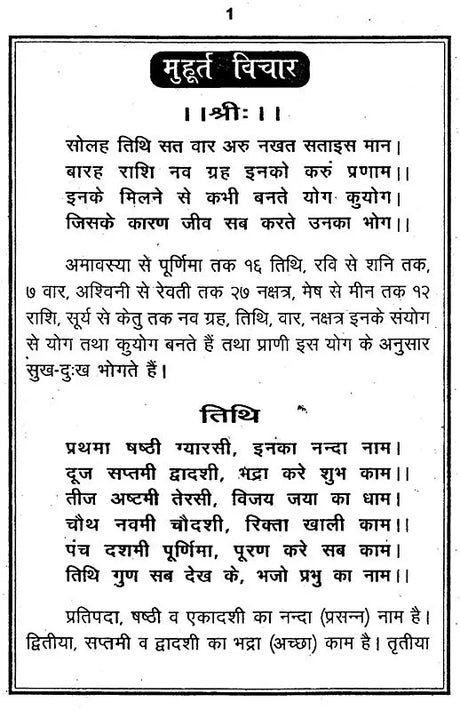 1
मुहूर्त विचार
।।श्रीः।।
सोलह तिथि सत वार अरु नखत सताइस मान।
बारह राशि नव ग्रह इनको करुं प्रणाम।।
इनके मिलने से कभी बनते योग कुयोग।
जिसके कारण जीव सब करते उनका भोग।।
अमावस्या से पूर्णिमा तक १६ तिथि, रवि से शनि तक,
७ वार, अश्विनी से रेवती तक २७ नक्षत्र, मेष से मीन तक १२
राशि, सूर्य से केतु तक नव ग्रह, तिथि, वार, नक्षत्र इनके संयोग
से योग तथा कुयोग बनते हैं तथा प्राणी इस योग के अनुसार
सुख-दुःख भोगते हैं।
तिथि
प्रथमा षष्ठी ग्यारसी, इनका नन्दा नाम।
दूज सप्तमी द्वादशी, भद्रा करे शुभ काम।।
तीज अष्टमी तेरसी, विजय जया का धाम।
चौथ नवमी चौदशी, रिक्ता खाली काम।।
पंच दशमी पूर्णिमा, पूरण करे सब काम।
तिथि गुण सब देख के, भजो प्रभु का नाम।।
प्रतिपदा, षष्ठी व एकादशी का नन्दा (प्रसन्न) नाम है।
द्वितीया, सप्तमी व द्वादशी का भद्रा (अच्छा) काम है। तृतीया